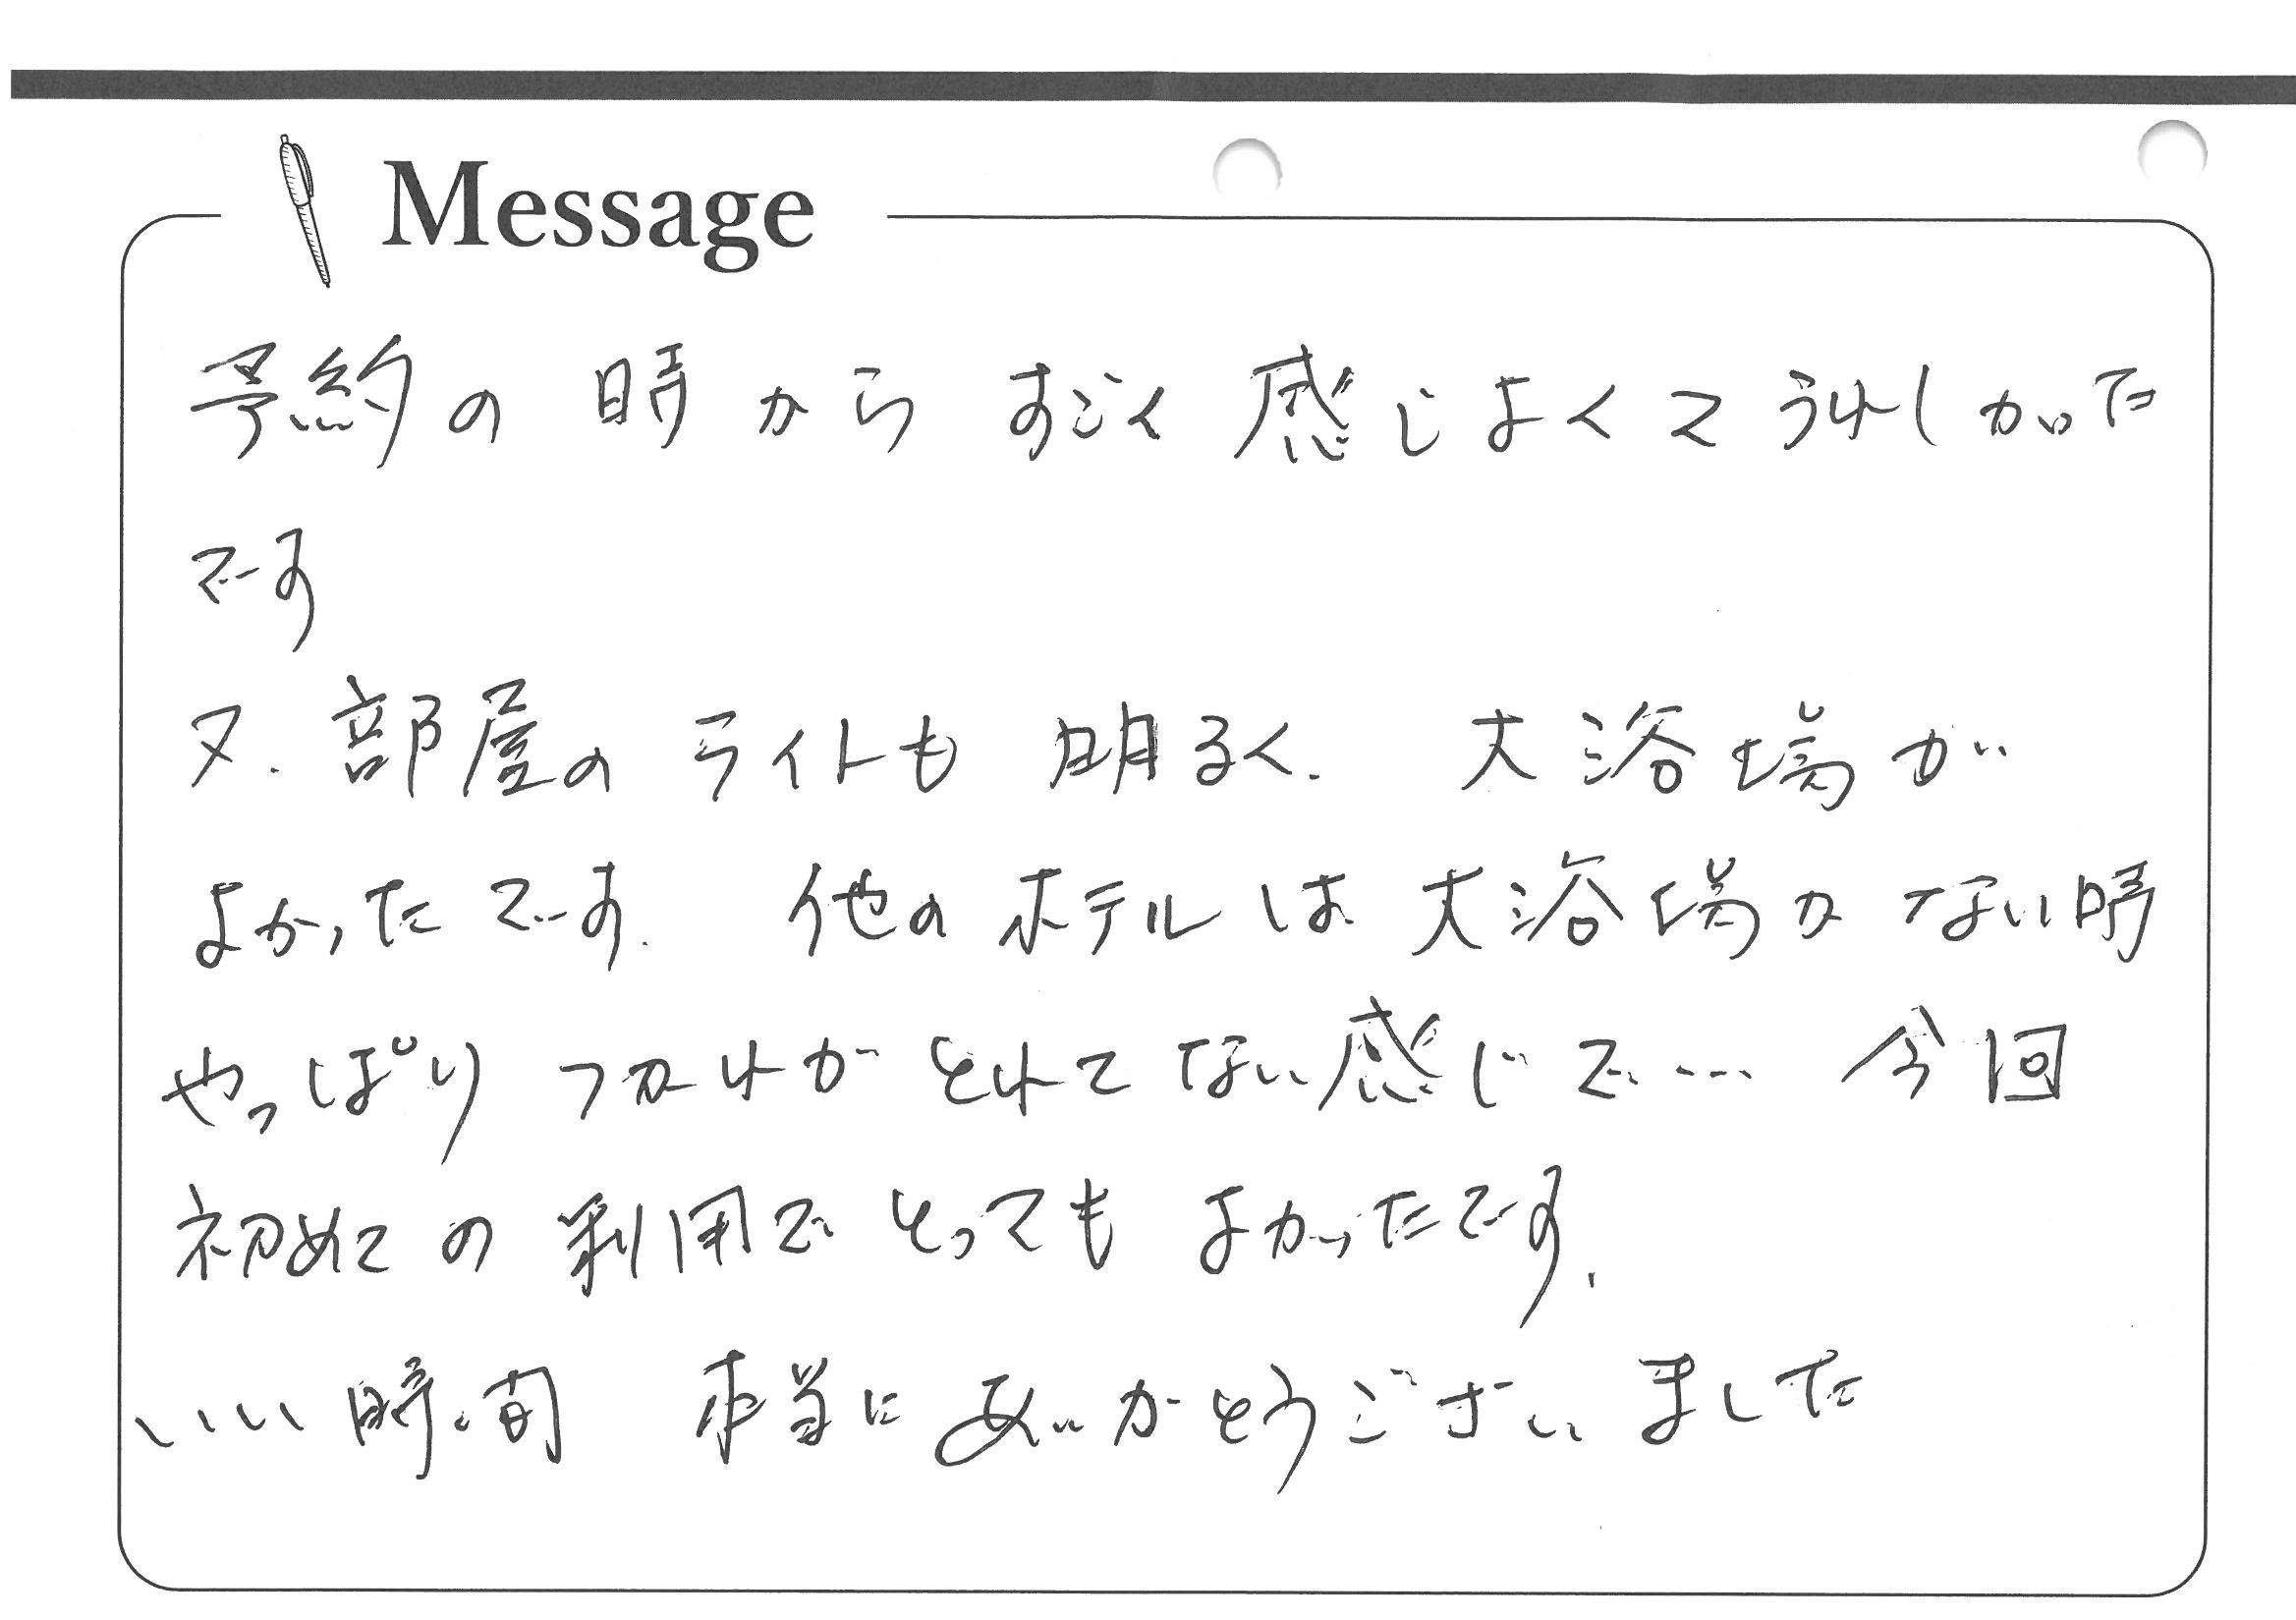 Message
予約の時からすごく感じよくてうれしかった
です
又、部屋のライトも明るく、大浴場が
よかったです。他のホテルは大浴場がない時
やっぱりつかれがとれてない感じで…今回
初めての利用でとってもよかったです。
いい時間本当にありがとうございました